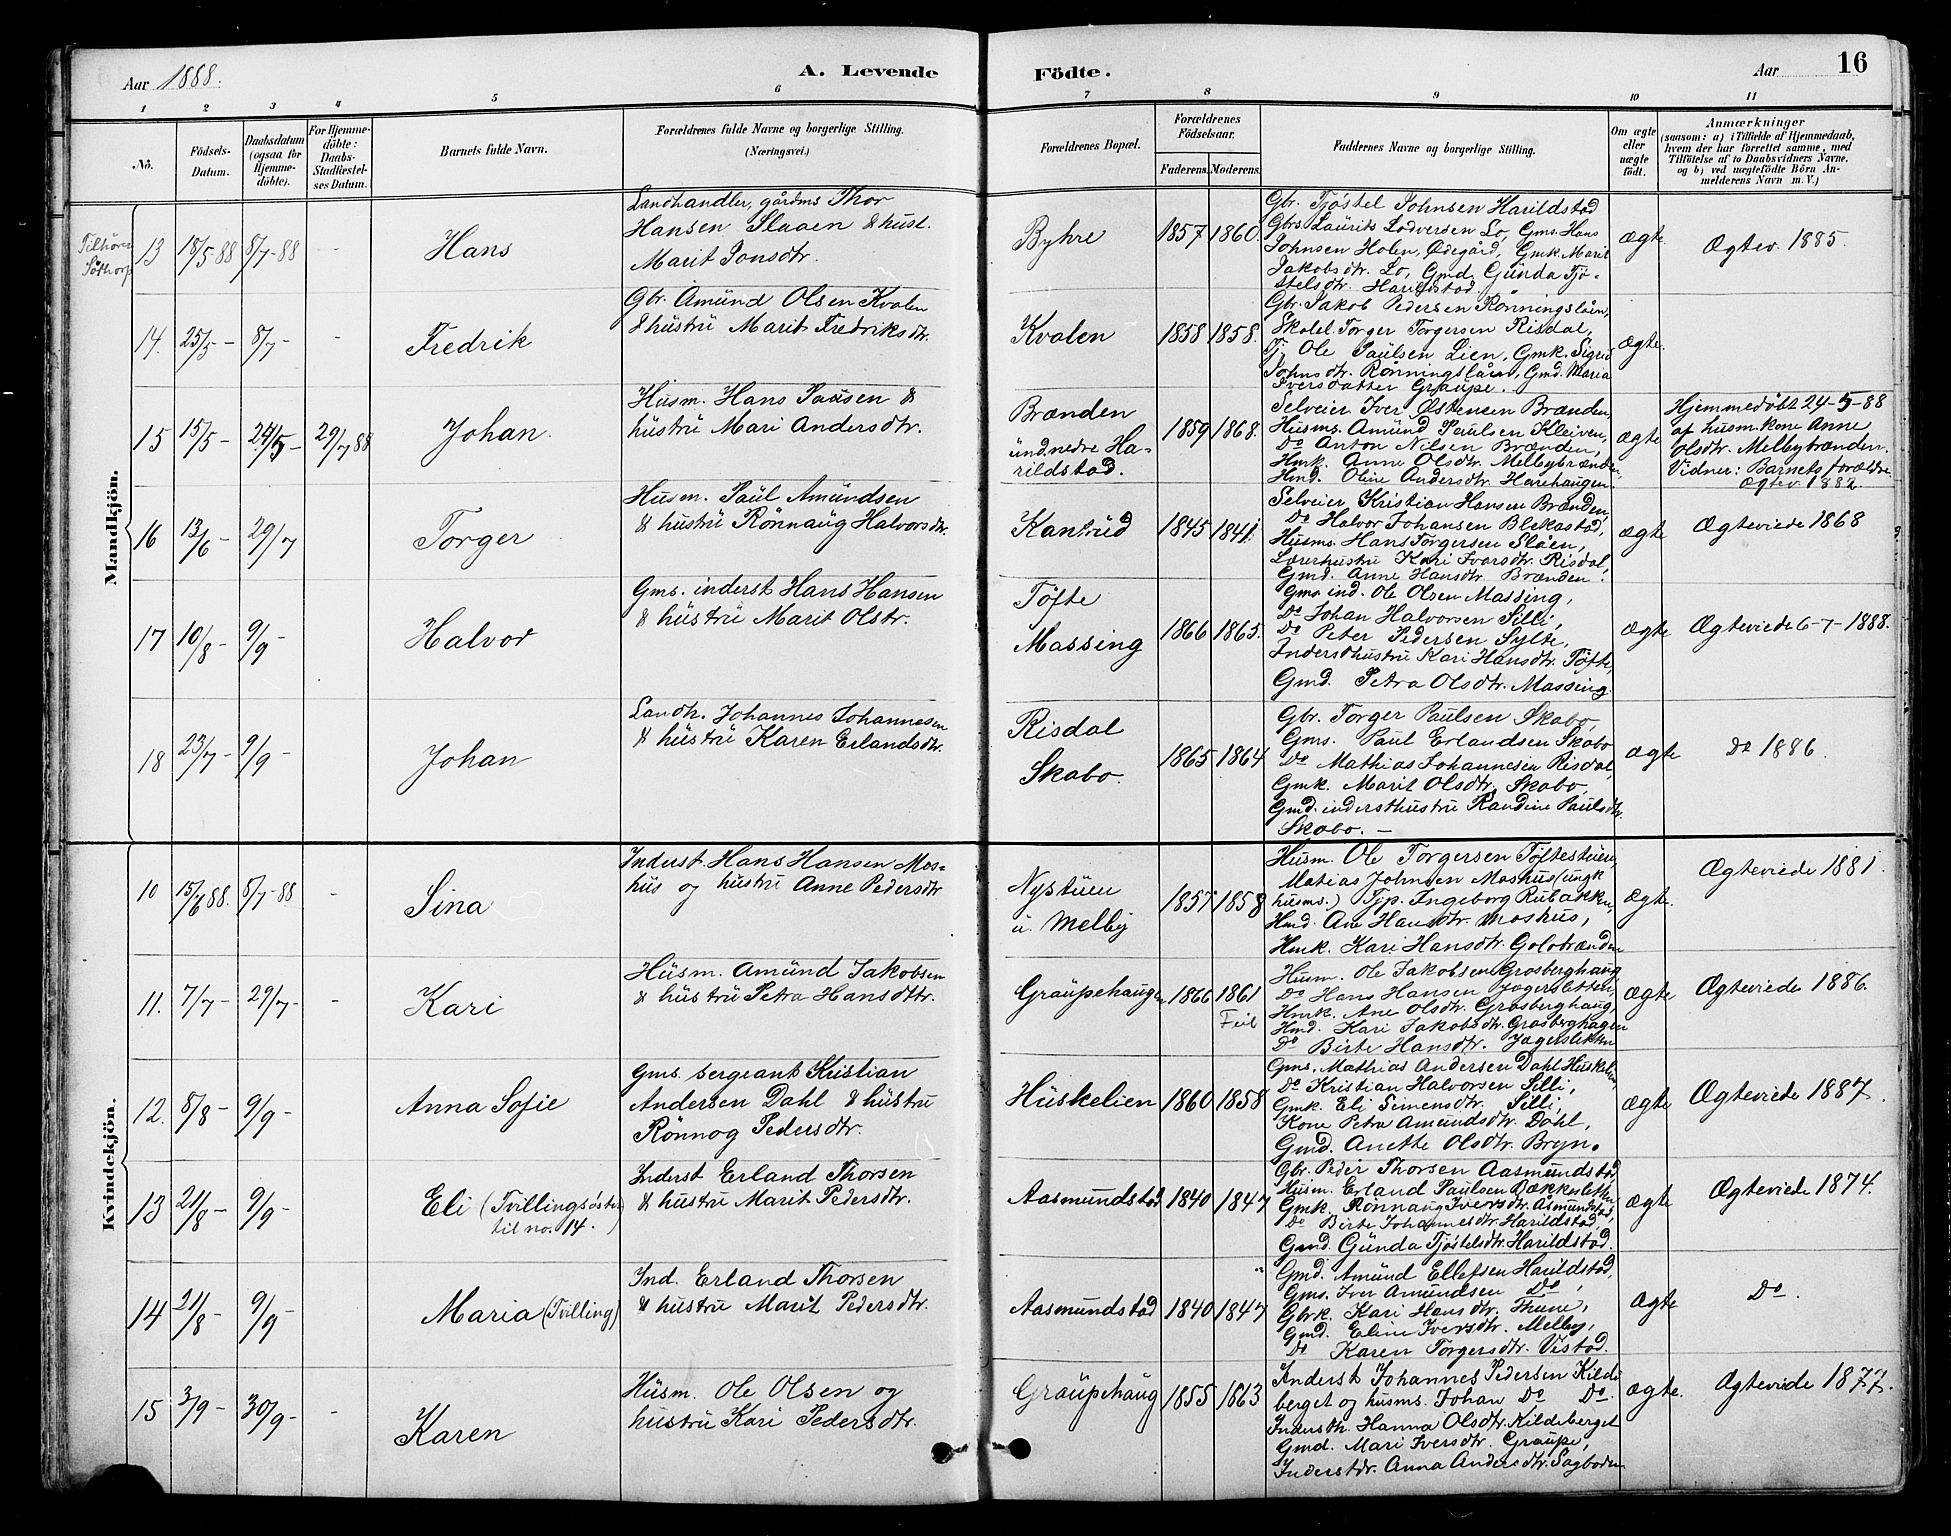 Aar 1888.
A. Levende Födte.
Aar
16
1 2 3 4 5 6 7 8 9 10 11
No.
Födsels-Datum.
Daabsdatum (ogsaa for Hjemme-döbte).
For Hjemme-döbte: Daabs-Stadfæstelses Datum.
Barnets fulde Navn.
Forældrenes fulde Navne og borgerlige Stilling.
(Næringsvei.)
Forældrenes Bopæl.
Forældrenes Födselsaar.
Faderens. Moderens.
Faddernes Navne og borgerlige Stilling.
Om ægte eller uægte födt.
Anmærkninger
(saasom: a) i Tilfælde af Hjemmedaab,
hvem der har forrettet samme, med
Tilföielse af to Daabsvidners Navne.
og b) ved uægtefödte Börn Anmelderens Navn m.V.)
Mandkjön.
Tilhører Sødtorp
13 18/5-88 8/7-88 - Hans
Landhandler, gårdms Thor
Hansen Slaaen & hust.
Marit Jonsdtr.
Byhre 1857 1860.
Gbr. Tjøstel Johnsen Harildstad
Gbrs Laurits Lodversen Lo, Gms. Hans
Johnsen Holen, Ødegård, Gmk. Marit
Jakobsdtr. Lo, Gmd. Gunda Tjø-
stelsdtr. Harildstad.
ægte. Ægtev. 1885.
14. 25/5 - 8/7- - Fredrik
Gbr. Amund Olsen Kvalen
& hustru Marit Fredriksdtr.
Kvalen 1858 1858.
Gbr. Jakob Pedersen Rønningslåen,
Skolel. Torger Torgersen Risdal,
Tj. Ole Paulsen Lien, Gmk. Sigrid
Johnsdtr. Rønningslåen, Gmd. Maria
Iversdatter Graupe.
ægte.
15 15/5 - 24/5 - 29/7 88 Johan.
Husm. Hans Paulsen &
hustru Mari Andersdtr.
Brænden
und. nedre Ha-
rildstad.
1859 1868.
Selveier Iver Østensen Brænden,
Husms. Amund Paulsen Kleiven,
Do Anton Nilsen Brænden,
Hmk. Anne Olsdtr. Melbybrænden
Hmd. Oline Andersdtr. Harehaugen.
ægte
Hjemmedøbt 24-5-88
af husm.kone Anne
Olsdtr. Melbybrænden.
Vidner: Barnets forældre
Ægtev. 1882.
16 13/6 - 29/7 Torger
Husm. Paul Amundsen
& hustru Rønnaug Halvorsdtr.
Kanstud 1845 1841.
Selveier Kristian Hansen Brænden,
Do Halvor Johansen Blekastad,
Husms. Hans Torgersen Slåen,
Lærerhustru Kari Iversdtr. Risdal,
Gmd. Anne Hansdtr. Brænden.
ægte Ægteviede 1868
17 10/8 - 9/9 - Halvor
Gms. inderst Hans Hansen
& hustru Marit Olstr.
Tøfte
Massing
1866 1865.
Gms ind. Ole Olsen Massing,
Do Johan Halvorsen Silli,
Do Peter Pedersen Sylte,
Indersthustru Kari Hansdtr. Tøfte,
Gmd. Petra Olsdtr. Massing.
ægte Ægteviede 6-7-1888.
18 23/7 - 9/9 - Johan
Landh. Johannes Johannesen
& hustru Karen Erlandsdtr.
Risdal
Skabo.
1865 1864
Gbr. Torger Paulsen Skabo,
Gms. Paul Erlandsen Skabo
Do Mathias Johannesen Risdal,
Gmk. Marit Olsdtr. Skabo,
Gmd. indersthustru Randine Paulsdtr.
Skabo. -
ægte Do 1886.
Kvindekjön.
10 15/6 88. 8/7-88 - Sina
Inderst. Hans Hansen Mos-
hus og hustru Anne Pedersdtr
Nystuen
u. Melby
1857 1858
Husm. Ole Torgersen Tøftestuen,
Matias Johnsen Moshus (ungk
husms.) Tjp. Ingeborg Rubakken,
Hmd. Ane Hansdtr. Moshus,
Hmk. Kari Hansdtr. Golobrænden
ægte. Ægteviede 1881.
11. 7/7 - 29/7 - - Kari
Husm. Amund Jakobsen
& hustru Petra Hansdttr.
Graupehaugen 1866 1861
Feil
Husm. Ole Jakobsen Grosberghaug
Do Hans Hansen Jagersletten,
Hmk. Ane Olsdtr. Grosberghaug,
Hmd. Kari Jakobsdtr. Grosberghagen
Do Birte Hansdtr. Jagersletten
ægte Ægteviede 1886.
12. 8/8 - 9/9 - Anna Sofie
Gms. sergeant Kristian
Andersen Dahl & hustru
Rønnog Pedersdtr.
Huskelien 1860 1858
Gms. Mathias Andersen Dahl Huskelien
Do Kristian Halvorsen Silli,
Gmk. Eli Simensdtr. Silli,
Kone Petra Amundsdtr. Dahl,
Gmd. Anette Olsdtr. Bryn.
ægte Ægteviede 1887.
13 21/8 - 9/9 - Eli (Tvillingsøster
til no. 14.)
Inderst Erland Thorsen
& hustru Marit Pedersdtr.
Aasmundstad 1840 1847
Gbr. Peder Thorsen Aasmundstad,
Husm. Erland Paulsen Bækkesletten,
Gmk. Rønnaug Iversdtr. Asmundstad,
Do Birte Johannesdtr. Harildstad,
Gmd. Gunda Tjøstelsdtr. Harildstad.
ægte Ægteviede 1874.
14 21/8 - 9/9 - Maria (Tvilling)
Ind. Erland Thorsen
& hustru Marit Pedersdtr.
Aasmundstad 1840 1847
Gmd. Amund Ellefsen Harildstad,
Gms. Iver Amundsen Do,
Gbrk. Kari Hansdtr. Thune,
Gmd. Eline Iversdtr. Melby,
Do Karen Torgersdtr. Vistad.
ægte Do.
15 3/9 - 30/9 - - Karen
Husm. Ole Olsen og
hustru Kari Pedersdtr.
Graupehaug 1855 1863
Inderst Johannes Pedersen Kilde
berget og husms. Johan Do Do.
Indersth. Hanna Olsdtr. Kildeberget
Gmd. Mari Iversdtr. Graupe,
Inderstdr. Anna Andersdtr. Sagboden
ægte. Ægteviede 1877.